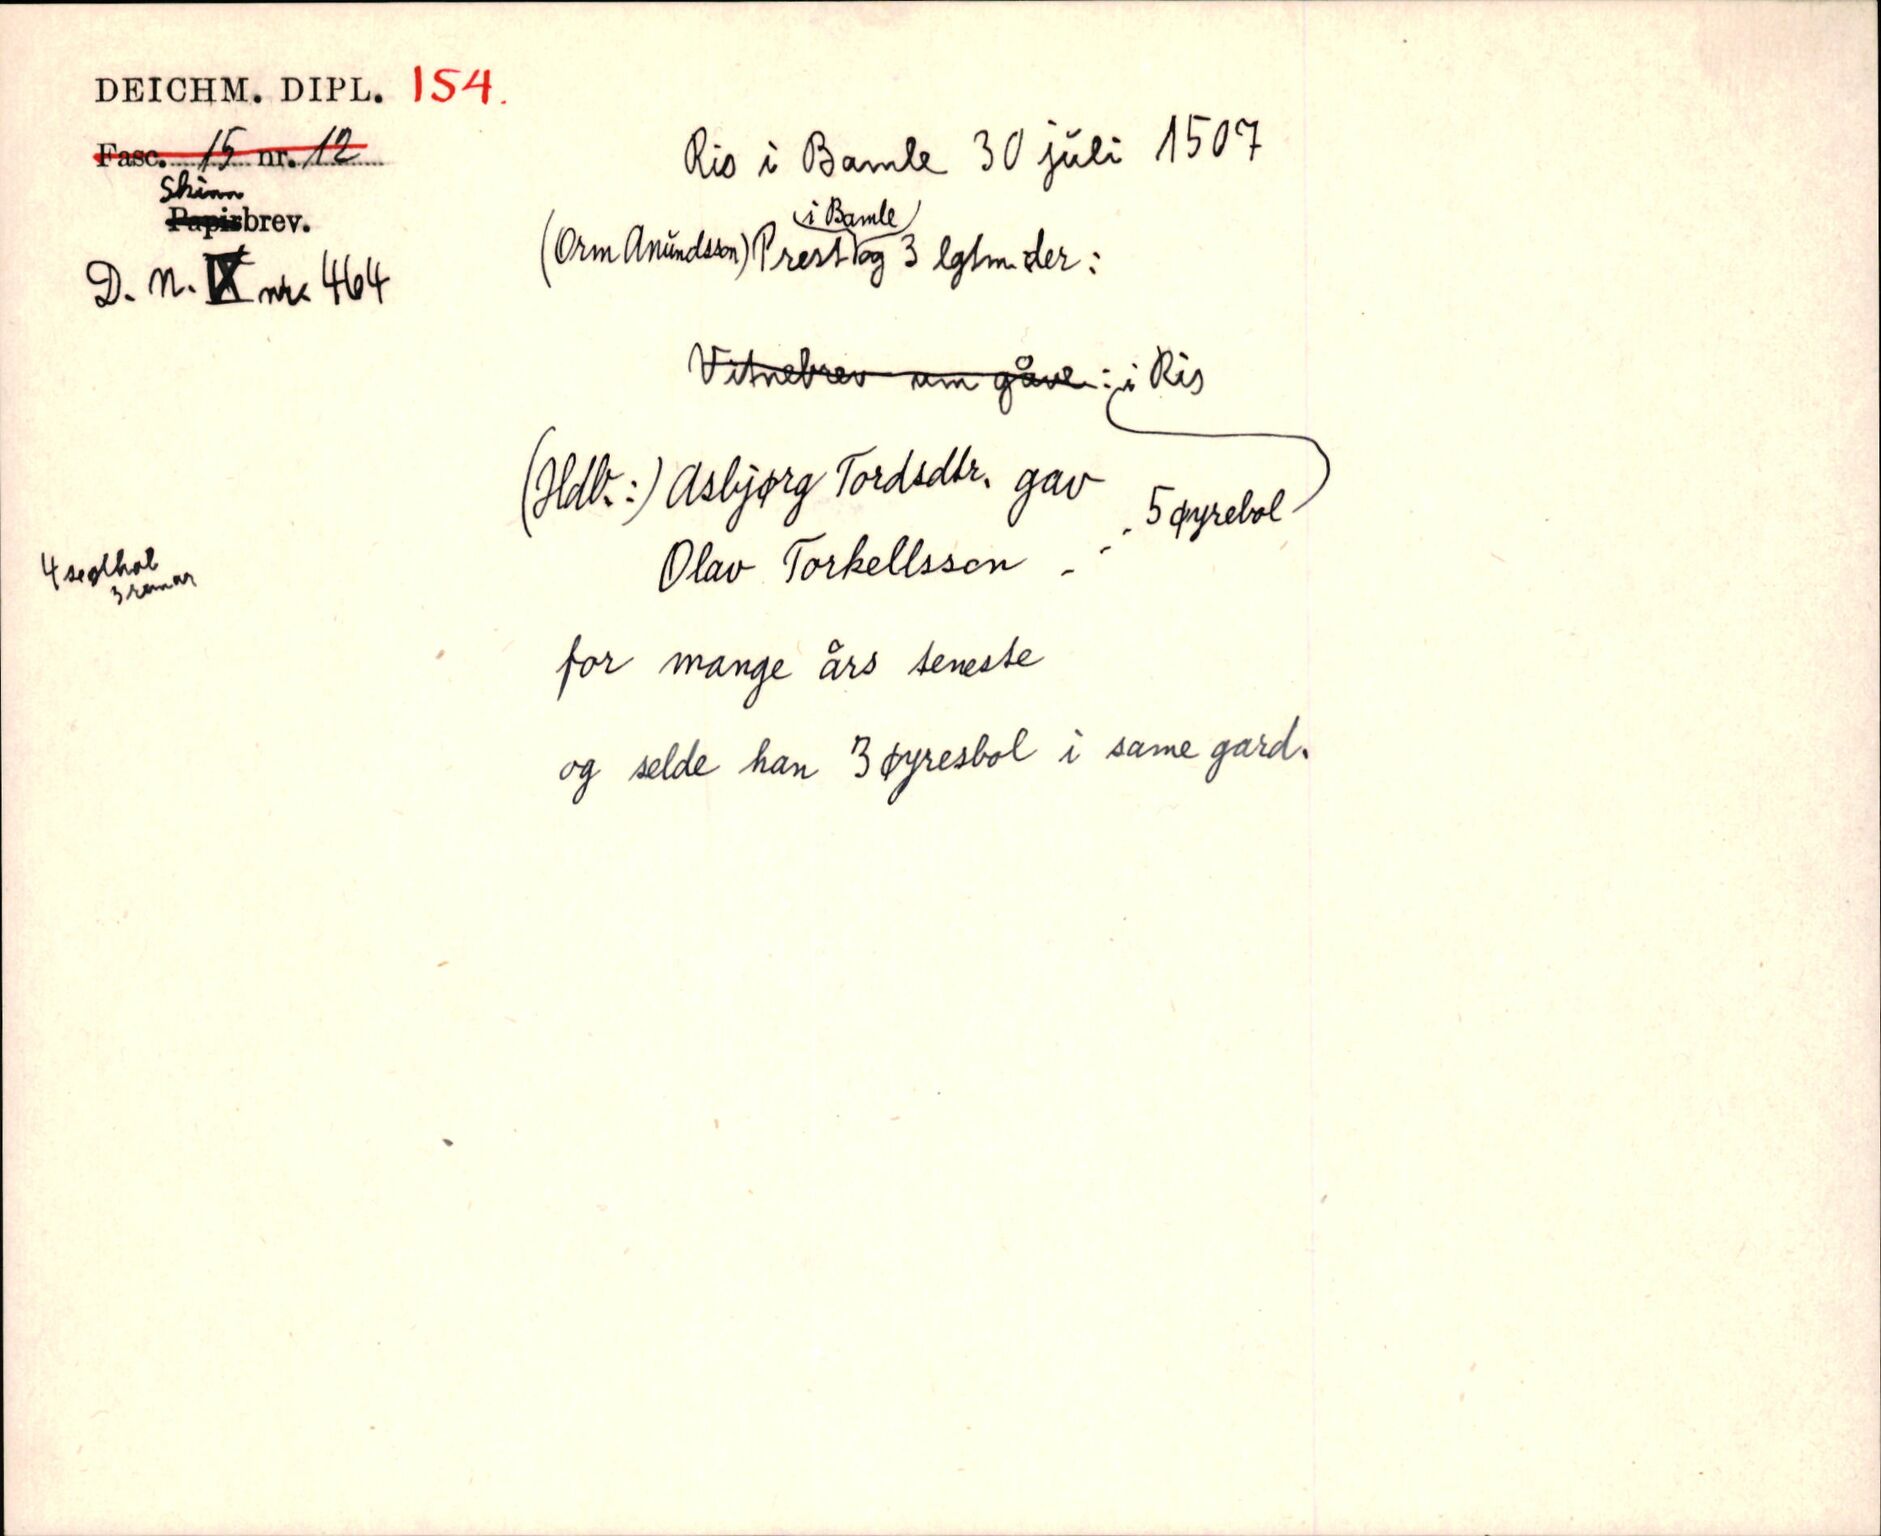 DEICHM. DIPL. 154.
Fasc. 15 nr. 12
Skinn
Papirbrev.
D. N. IX nr. 464
Ris i Bamle 30 juli 1507
i Bamle
(Orm Anundsson) Prest og 3 lgtm. der:
Vitnebrev um gåve: i Ris
(Hdl.:) Asbjørg Tordsdtr. gav
5 øyrebol
Olav Torkellsson
4 seglhol
3 remar
for mange års teneste
og selde han 3 øyresbol i same gard.